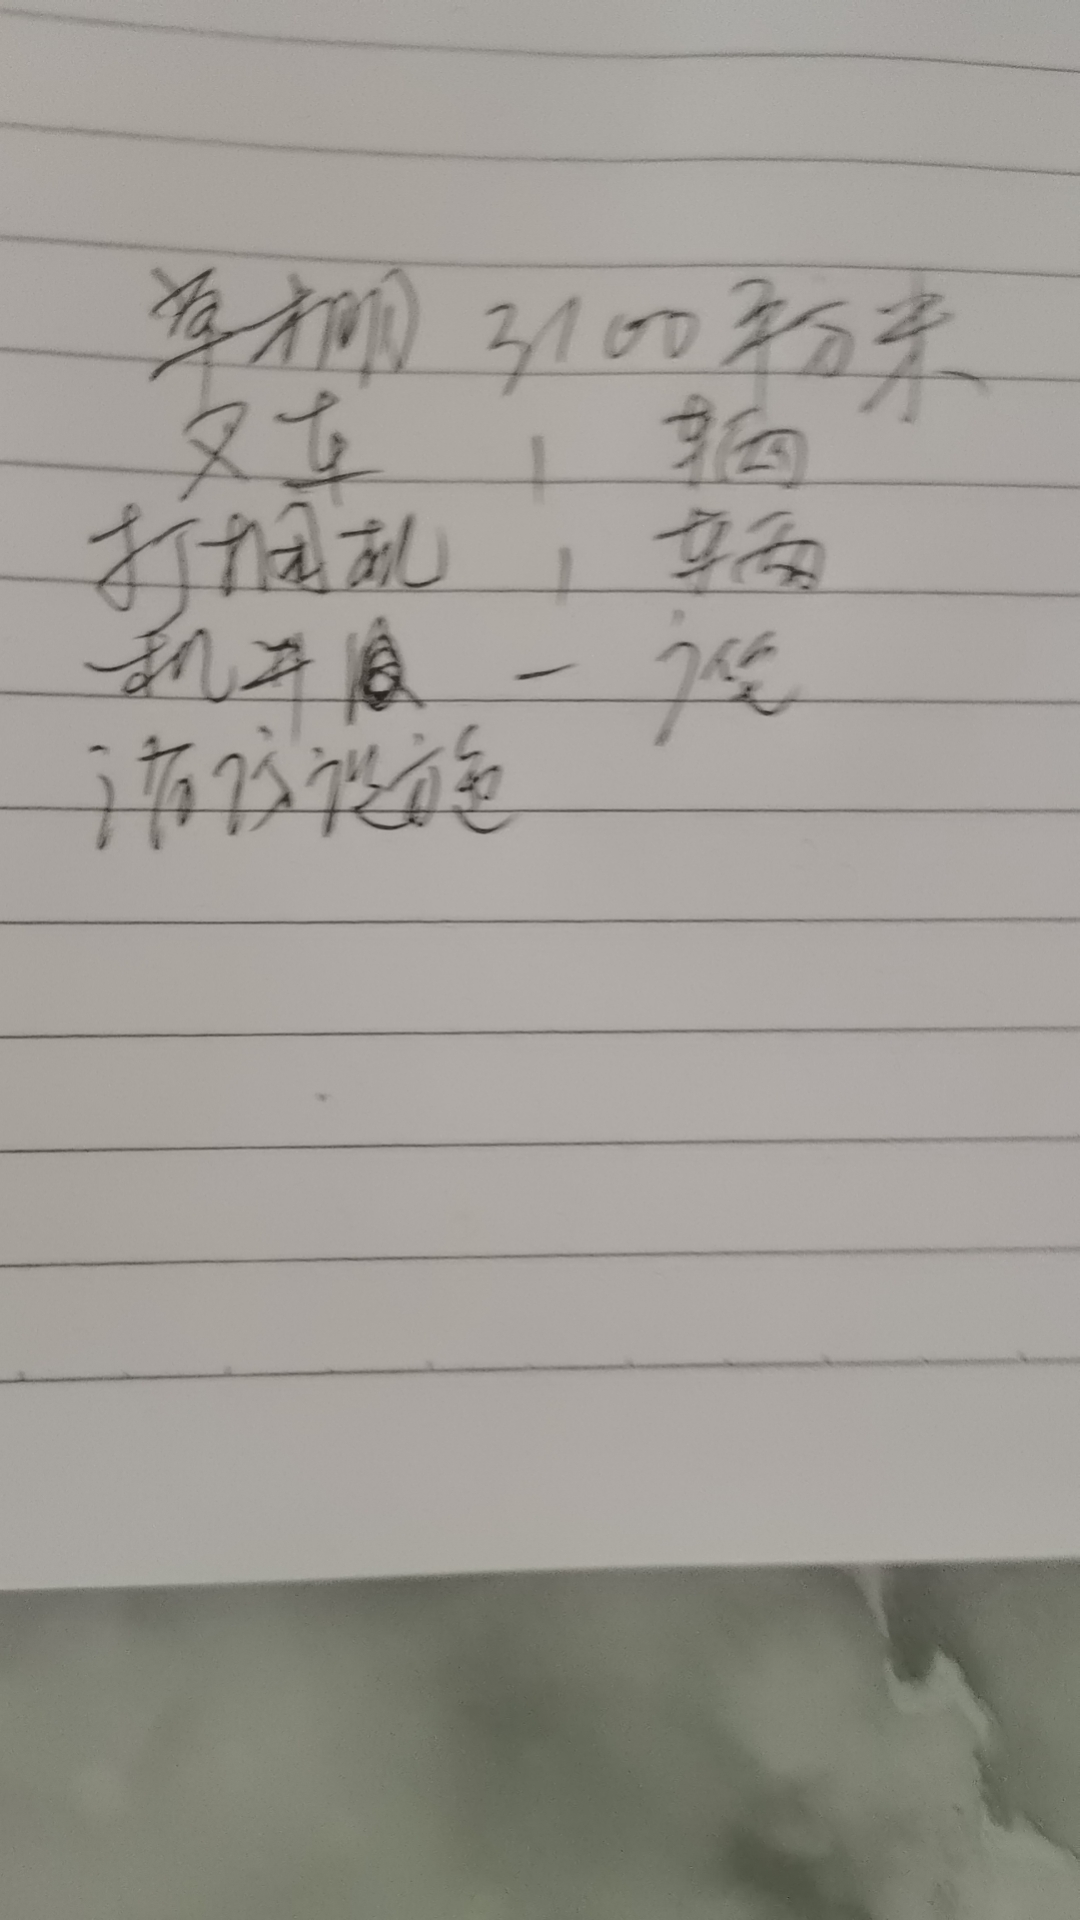 草棚 3100平方米
叉车 1 辆
打捆机 1 辆
机井 一
设施